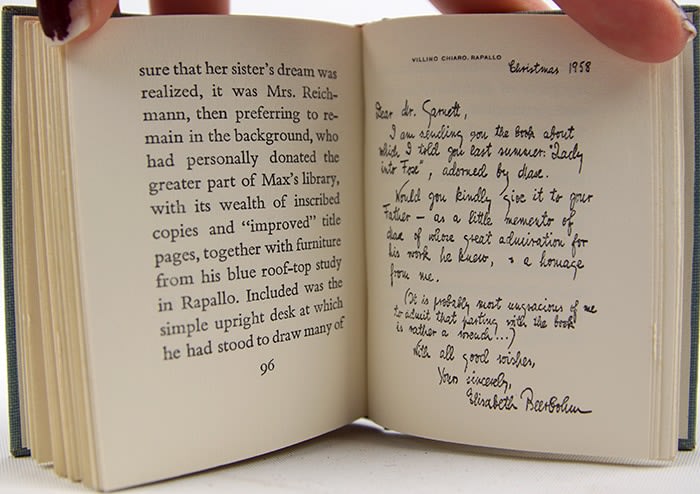 sure that her sister's dream was
realized, it was Mrs. Reich-
mann, then preferring to re-
main in the background, who
had personally donated the
greater part of Max's library,
with its wealth of inscribed
copies and “improved” title
pages, together with furniture
from his blue roof-top study
in Rapallo. Included was the
simple upright desk at which
he had stood to draw many of
96
VILLINO CHIARO, RAPALLO
Christmas 1958
Dear Mr. Garnett,
I am sending you the book about
which I told you last summer: "Lady
into Fox", adorned by Max.
Would you kindly give it to your
Father — as a little memento of
Max of whose great admiration for
his work he knew, & a homage
from me.
(It is probably most ungracious of me
to admit that parting with the book
is rather a wrench...)
With all good wishes,
Yours sincerely,
Elisabeth Beerbohm